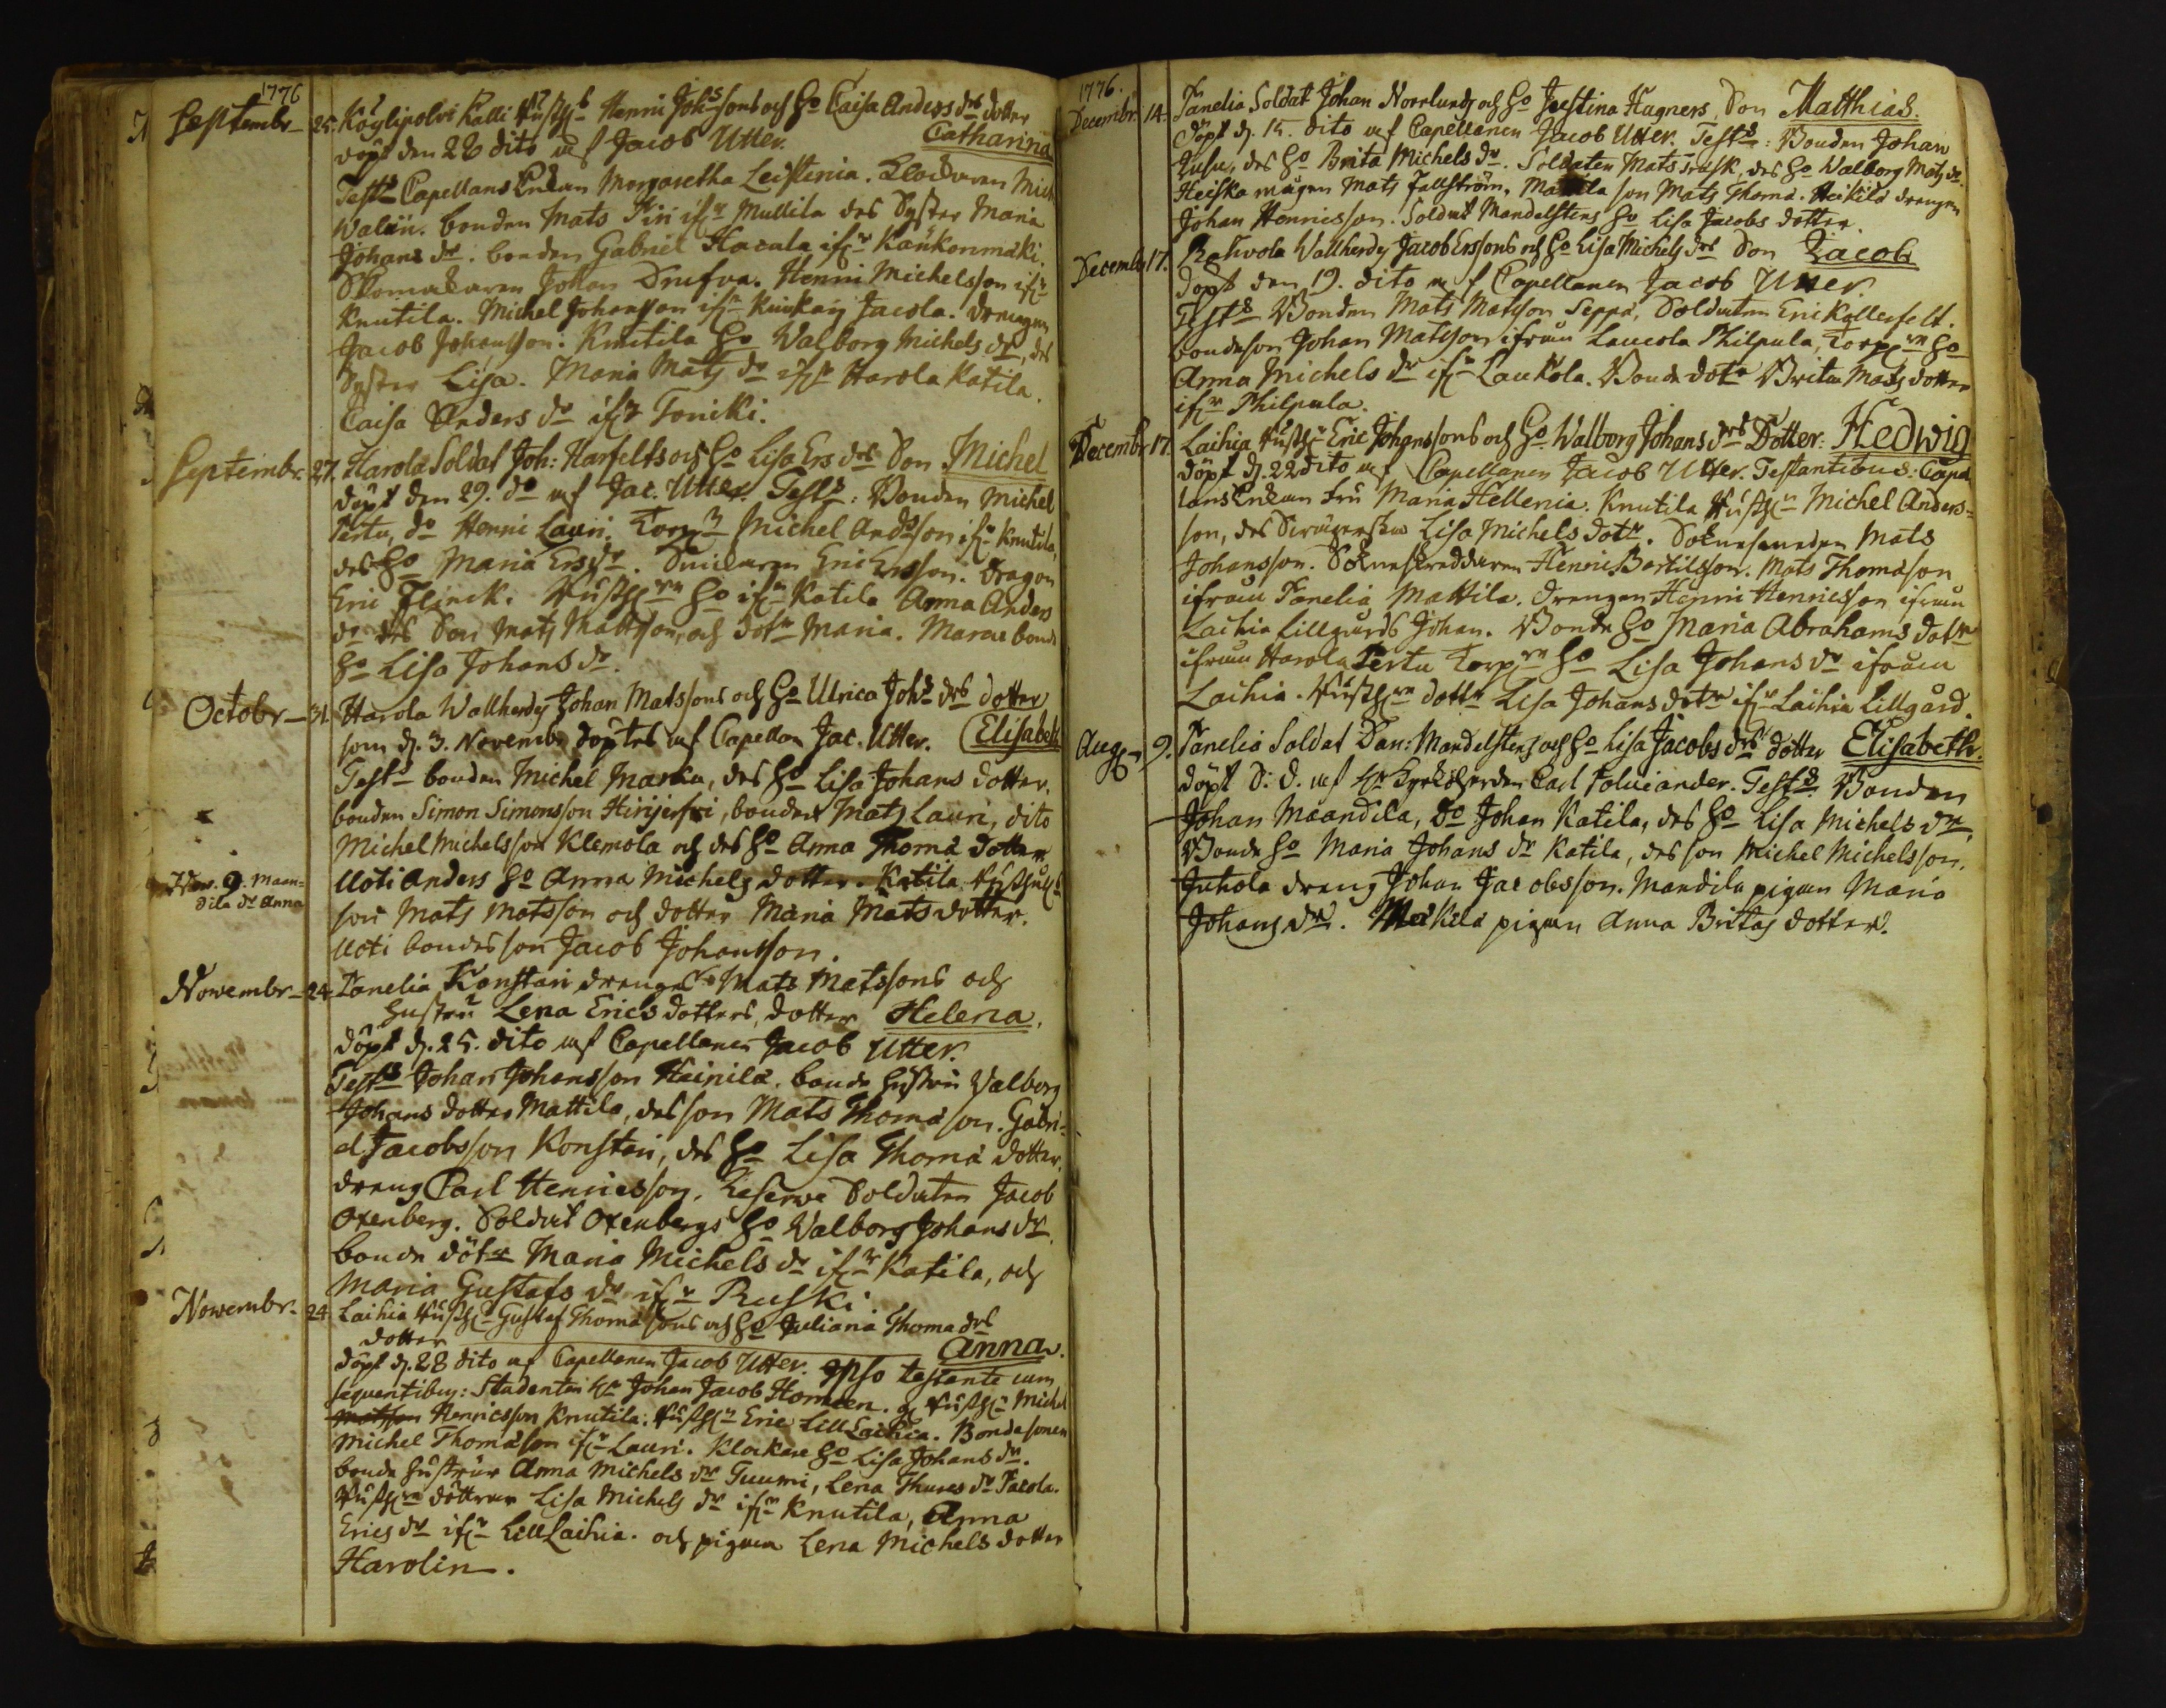 1776
Septembr 25. Köylipolvi Kalli Rusth: Henric Johssons och Ho Caisa Anders drs dotter
döpt den 28 dito af Jacob Utter. Catharina
Tests Capellans Enkan Margaretha Leistenia. Klockaren Mich
Walÿn. bonden Mats Siri ifn Mullila des Syster Maria
Johans dr. bonden Gabriel Hacula ifn Kaukonmäki.
Skomakaren Johan Drufva. Henric Michelsson ifn
Knutila. Michel Johansson ifn Kuikais Jacola. drengen
Jacob Johansson. Knutila Ho Walborg Michels dr, des
Syster Lisa. Maria Mats dr ifn Harola Katila.
Caisa Anders dr ifn Toniki.
Septembr 27. Harola Soldat Joh: Harfelts och Ho Lisa Ers drs Son Michel
döpt den 29. do af Jac. Utter. Tests: Bonden Michel
Pertu, do Henric Lauri. Torpn Michel Andsson ifn Knutila,
des Ho Maria Ersdr. Eric Ersson. Dragon
Eric Flinck. Rusthrn Ho ifn Katila Anna Anders
dr des Son Mats Mattsson, och dotr Maria. bonde
Ho Lisa Johans dr.
Octobr 31. Harola Wallherdes Johan Matssons och Ho Ulrica Johs drs dotter
som d. 3. Novembr döptes af Capellan Jac. Utter. Elisabeth
Tests bonden Michel Marku, des Ho Lisa Johans dotter.
bonden Simon Simonsson Hirjerfwi, bonden Mats Lauri, dito
Michel Michelsson Klemola och des Ho Anna Thomæ dotter
Nov. 9. Maan=
dila dr Anna
Uoti Anders Ho Anna Michels dotter. Katila
son Mats Matsson och dotter Maria Mats dotter.
Uoti bondes son Jacob Johansson.
Novembr 24. Tanelia Konstari drengs Mats Matssons och
hustru Lena Erics dotters, dotter Helena,
döpt d. 25. dito af Capellanen Jacob Utter.
Tests Johan Johansson Heinilä. bonde hustru Valborg
Johans dotter Mattila, des son Mats Thomæson. Gabri=
el Jacobsson Konstari, des Ho Lisa Thomæ dotter.
dreng Carl Henricsson. Reserve Soldaten Jacob
Oxenberg. Soldat Oxenbergs Ho Walborg Johans dr.
bonde dotr Maria Michels dr ifn Katila, och
Maria Gustafs dr ifn Ruski.
Novembr 24 Laihia Rusth: Gustaf Thomæsons och Ho Juliana Thomæ drs
dotter Anna.
döpt d. 28 dito af Capellanen Jacob Utter. ipso testante cum
sequentibus: Studenten Hr Johan Jacob Homeen. Rusth: Michel
Matsson Henricsson Knutila. Rusth: Eric Lill Laihia. Bondesonen
Michel Thomæson ifn Lauri. Klockare Ho Lisa Johans dr.
bonde hustrur Anna Michels dr Tuumi, Lena Thures dr Jacola.
Rusthrn döttrar Lisa Michels dr ifn Knutila, Anna
Erics dr ifn Lill Laihia. och pigan Lena Michels dotter
Harolin.
1776.
Decembr. 14. Tanelia Soldat Johan Norrlunds och Ho Justina Hagners, Son Matthias.
döpt d. 15. dito af Capellanen Jacob Utter. Tests: Bonden Johan
Juhu, des Ho Brita Michels dr. Soldaten Mats Träsk, des Ho Walborg Mats dr.
Heiska mågen Mats Fallström, Mattila son Mats Thomæ. Heikilä drengen
Johan Henricsson. Soldat Mandelstens Ho Lisa Jacobs dotter.
Decembr 17. Rahvola Wallherdes Jacob Erssons och Ho Lisa Michels drs Son Jacob
döpt den 19. dito af Capellanen Jacob Utter
Tests Bonden Mats Matsson Seppä, Soldaten Eric Kellerfelt.
bondeson Johan Matsson ifrån Laucola Philpula, Torprn Ho
Anna Michels dr ifn Laukola. Bonde dotr Brita Mats dotter
ifn Philpula.
Decembr 17. Laihia Rusth: Eric Johanssons och Ho Walborg Johans drs Dotter: Hedwig
döpt d. 22 dito af Capellanen Jacob Utter. Testantibus: Capel
lans Enkan Fru Maria Hellenia. Knutila Rusth: Michel Anders=
son, des Swägerskan Lisa Michels dotr. Mats
Johansson. Sokneskreddaren Henric Bertilsson. Mats Thomæson
ifrån Tanelia Mattila. drengen Henric Henricsson ifrån
Laihia Lillgårds Johan. Bonde Ho Maria Abrahams dotr
ifrån Harola Pertu Torprn Ho Lisa Johans dr ifrån
Laihia. Rusthrn dottr Lisa Johans dotr ifn Laihia Lillgård.
Aug: 9. Tanelia Soldat Dan: Mandelstens och Ho Lisa Jacobs drs dotter Elisabeth.
döpt S. D. af Hr Kyrkoherden Carl Poliviander. Tests. Bonden
Johan Maandila, Do Johan Katila, des Ho Lisa Michels dr.
Bonde Ho Maria Johans dr Katila, des son Michel Michelsson.
Juhola dreng Johan Jacobsson. Mandila pigan Maria
Johans dr. Meikilä pigan Anna Britas dotter.